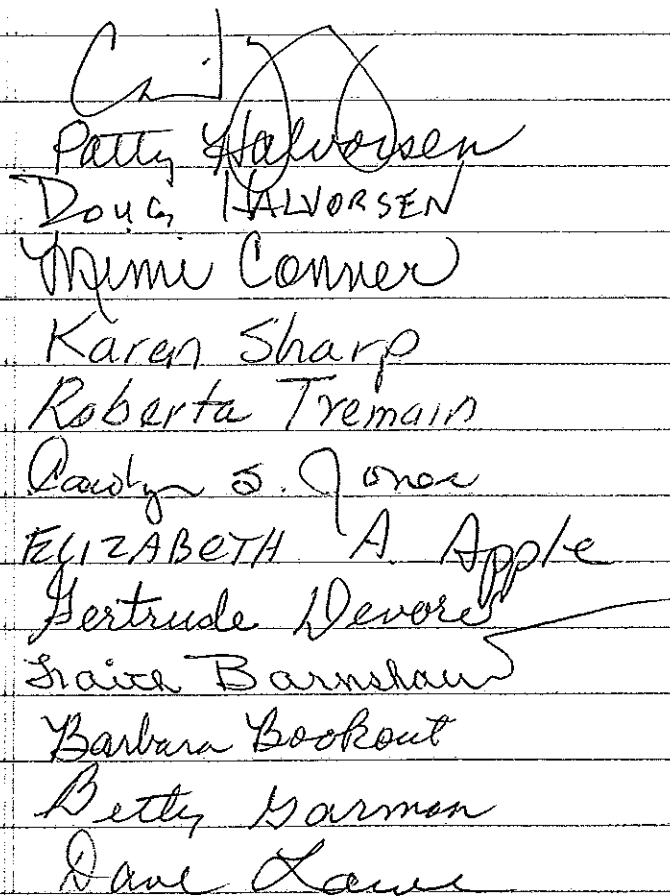 Patty Halvorsen
Doug HALVORSEN
Mimi Conner
Karen Sharp
Roberta Tremain
Carolyn S. Jones
ELIZABETH A. Apple
Gertrude Devore
Barnshaw
Barbara Bookout
Betty Garman
Dave Lowe